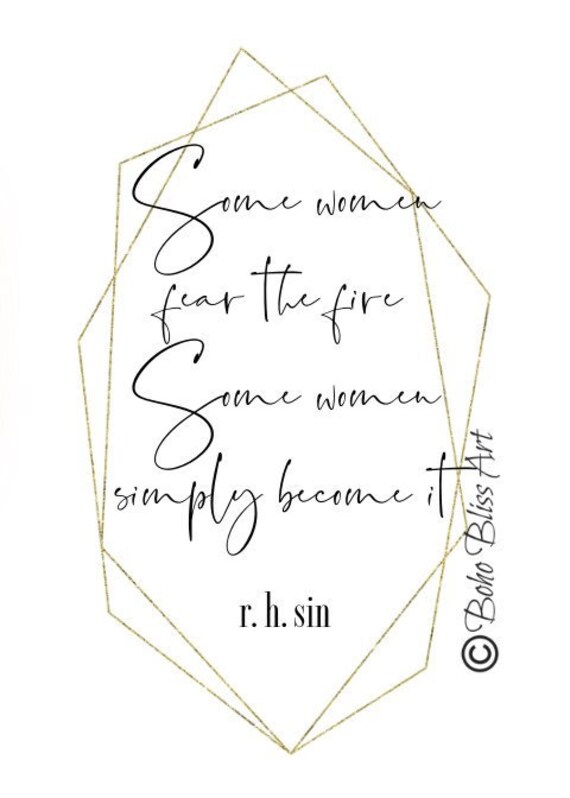 Some women
fear the fire
Some women
simply become it
r. h. sin
©Boho Bliss Art